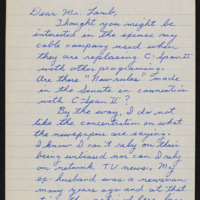 Dear Mr. Lamb,
Thought you might be
interested in the spense my
cable company used when
they are replacing C-Span II
with other programing.
Are there "New rules" made
in the Senate in connection
with C-Span II?
By the way, I do not
like the concentration on what
the newspapers are saying.
I know I can't rely on their
being unbiased nor can I rely
on network TV news. My
ex-husband was a newsman
many years ago and at that